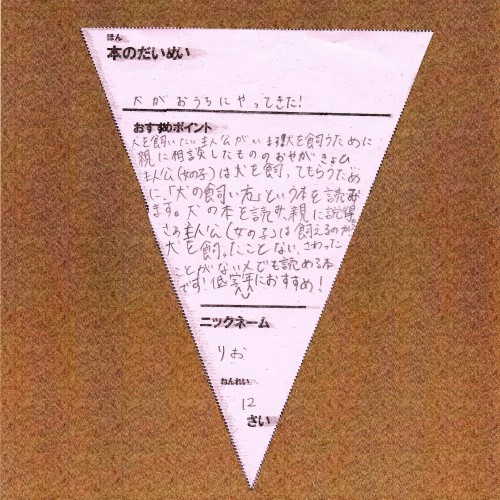 ほん
本のだいめい
犬がおうちにやってきた!
おすすめポイント
犬を飼いたい主人公がいます犬を飼うために
親に相談したもののおやがきょひ
主人公(女の子)は犬を飼ってもらうため
に「犬の飼い方」という本を読み
ます。犬の本を読み親に説得
さあ主人公(女の子)は飼えるのか
犬を飼ったことない、さわった
ことがない人でも読める本
です!低学年におすすめ!
ニックネーム
りお
ねんれい
12
さい